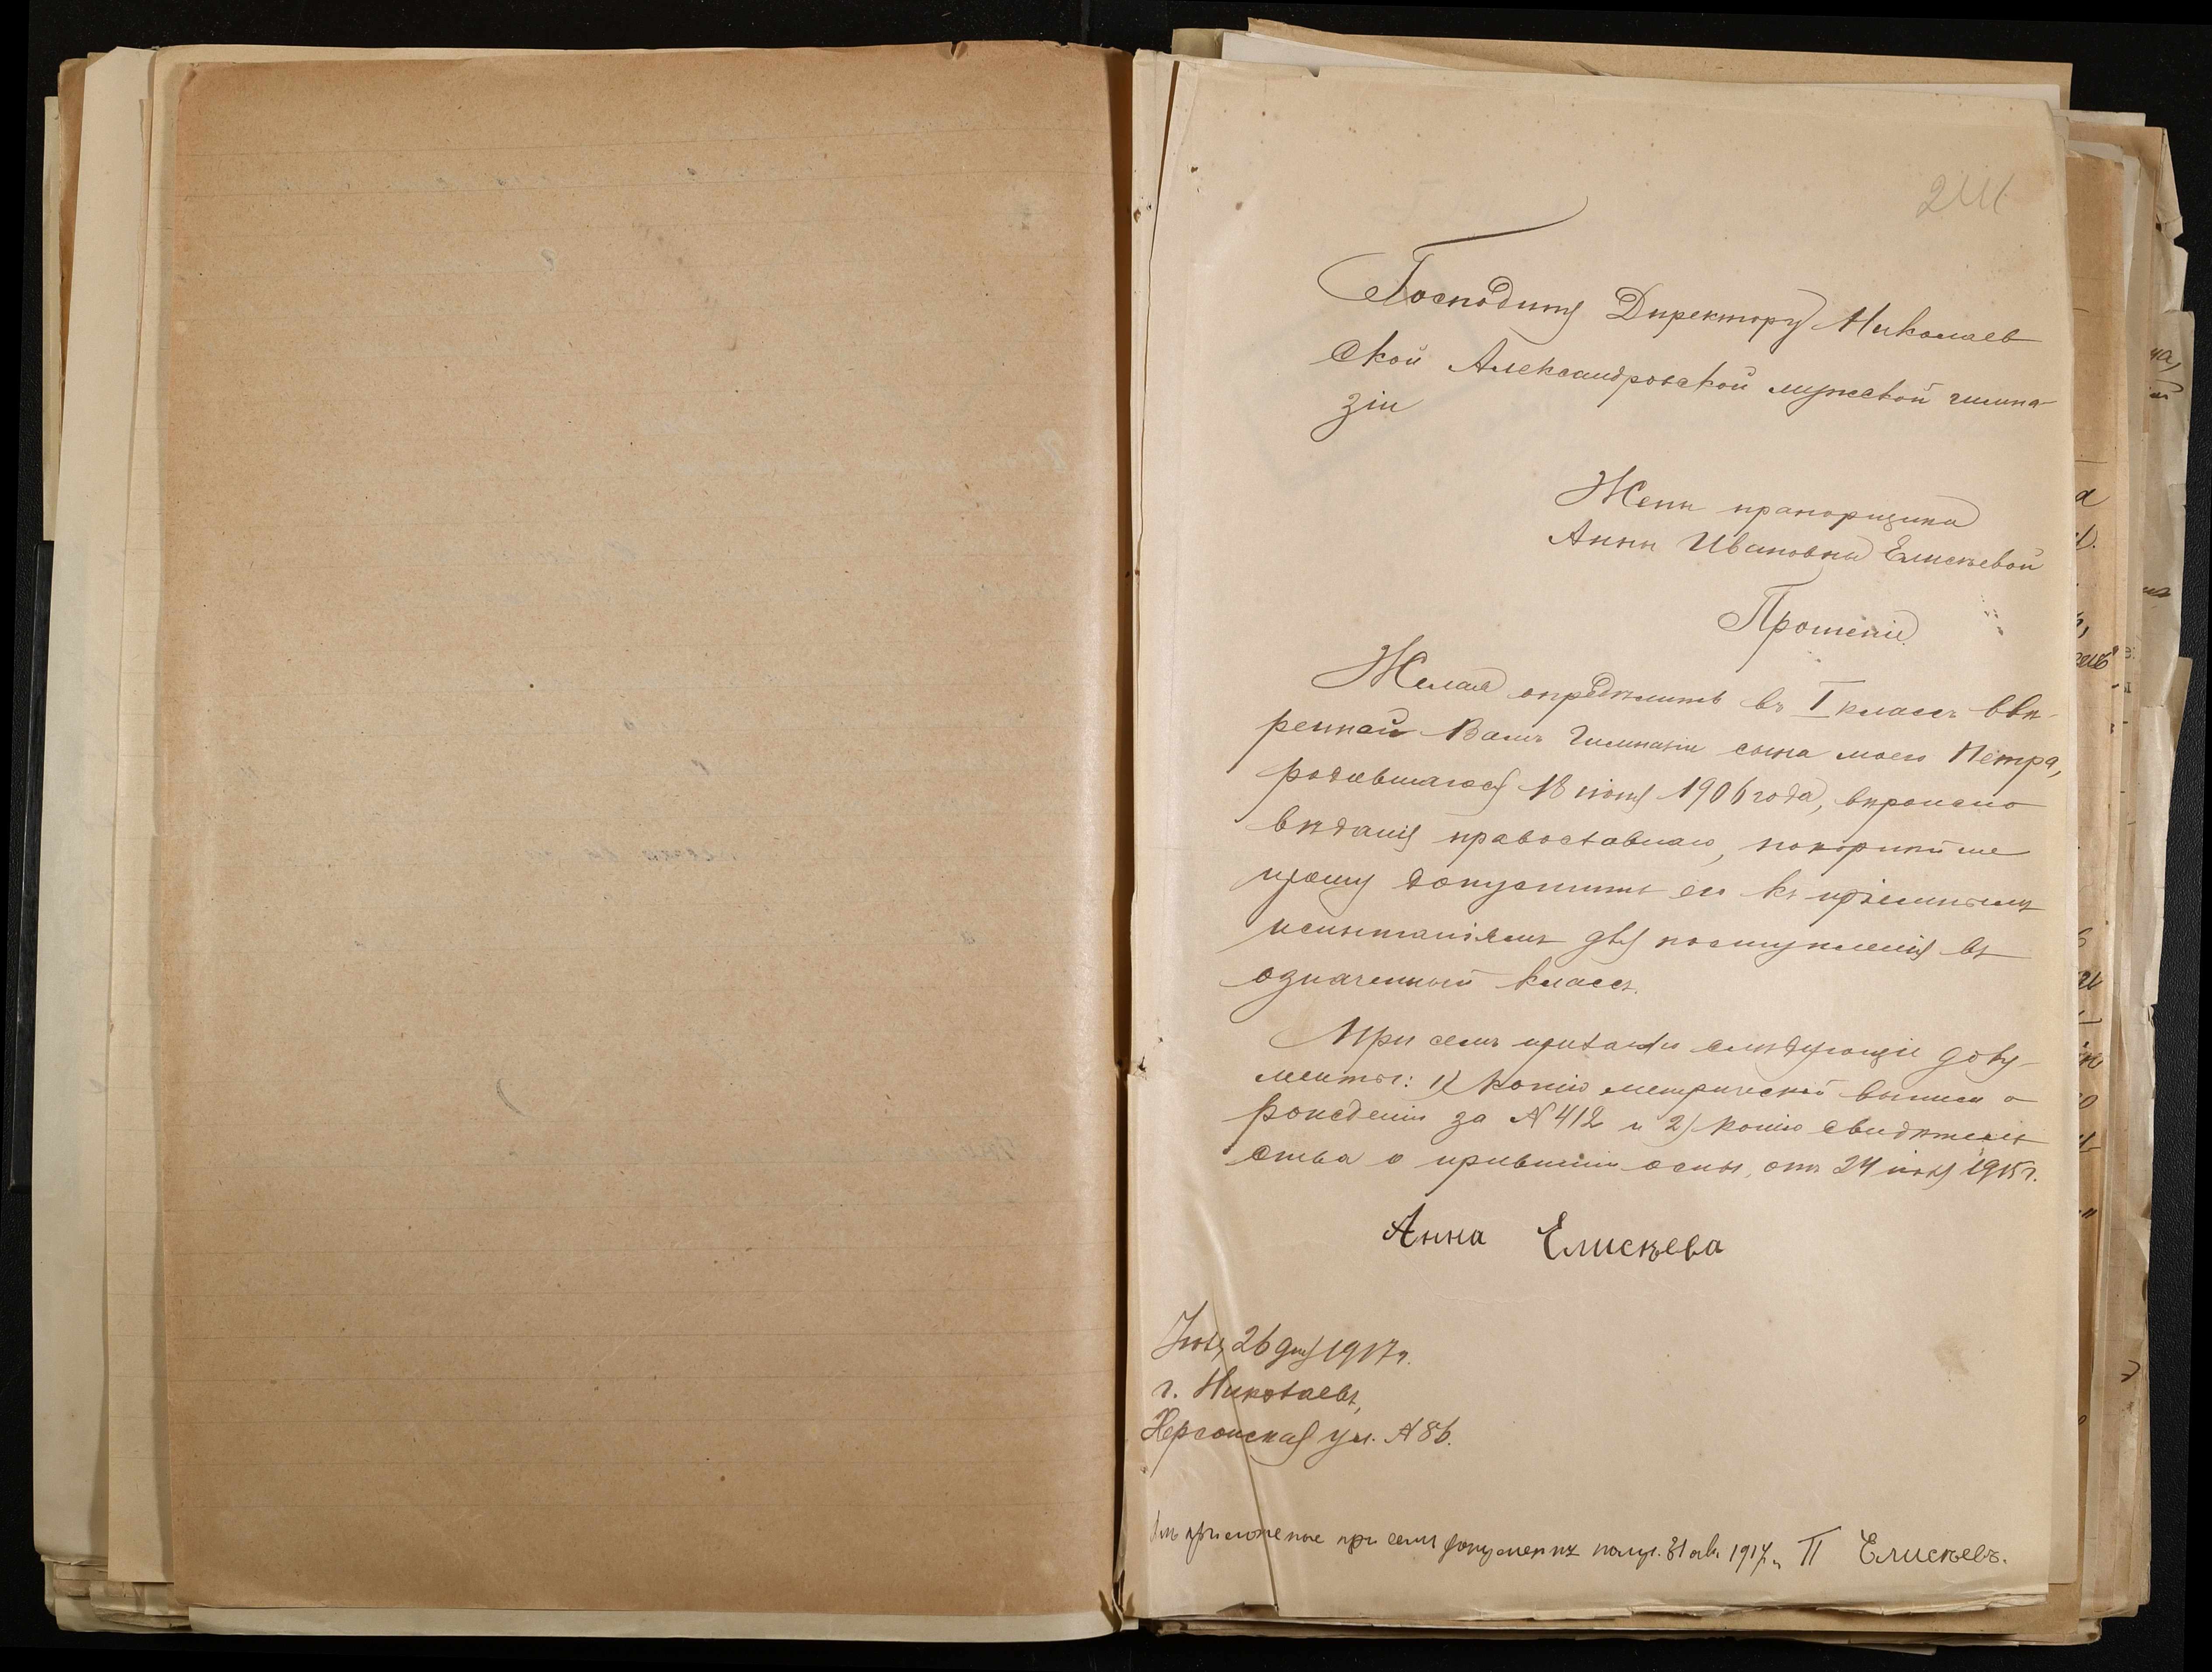 241
Господину Директору Николаев
ской Александровской мужской гимна-
зіи
Жены прапорщика
Анны Ивановны Елисѣевой
Прошеніе
Желая опредѣлить въ I классъ ввѣ-
ренной Вамъ Гимназіи сына моего Петра,
родившагося 18 іюня 1906 года, вѣроиспо
вѣданія православнаго, покорнѣйше
прошу допустить его къ пріемнымъ
испытаніямъ для поступленія въ
означенный классъ.
При семъ прилагаю слѣдующіе доку-
менты: 1) копію метрической выписи о
рожденіи за № 412 и 2) копію свидѣтель
ства о привитіи оспы, отъ 24 іюля 1915 г.
Анна Елисѣева
26 дня 1917 г.
г. Николаевъ,
Херсонская ул. № 86.
приложенное при семъ документъ получ. 31 ав. 1917 г. П Елисѣевъ.